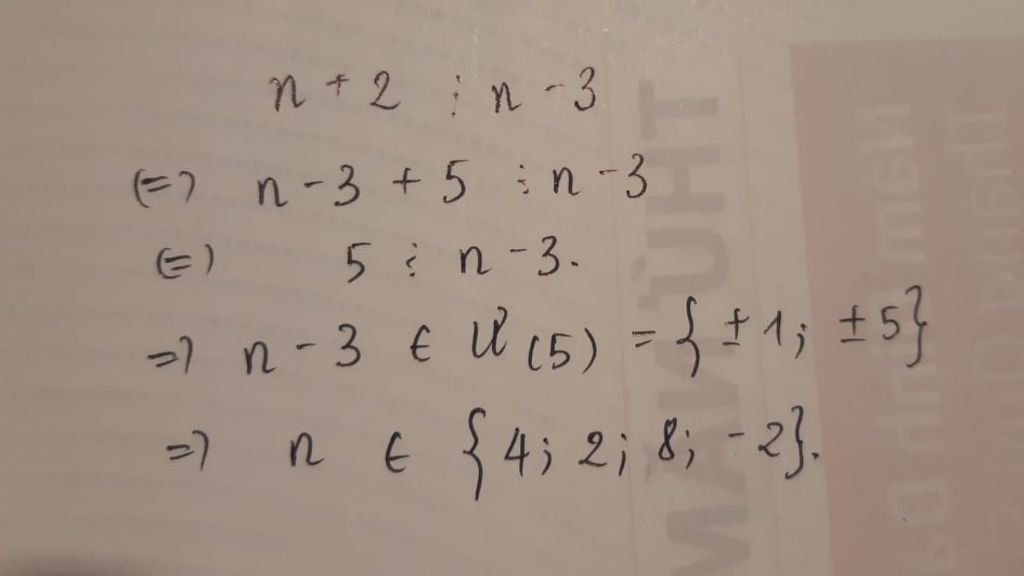 n + 2 ⋮ n - 3
(=) n - 3 + 5 ⋮ n - 3
(=) 5 ⋮ n - 3.
=) n - 3 ∈ Ư(5) = {±1; ±5}
=) n ∈ {4; 2; 8; -2}.